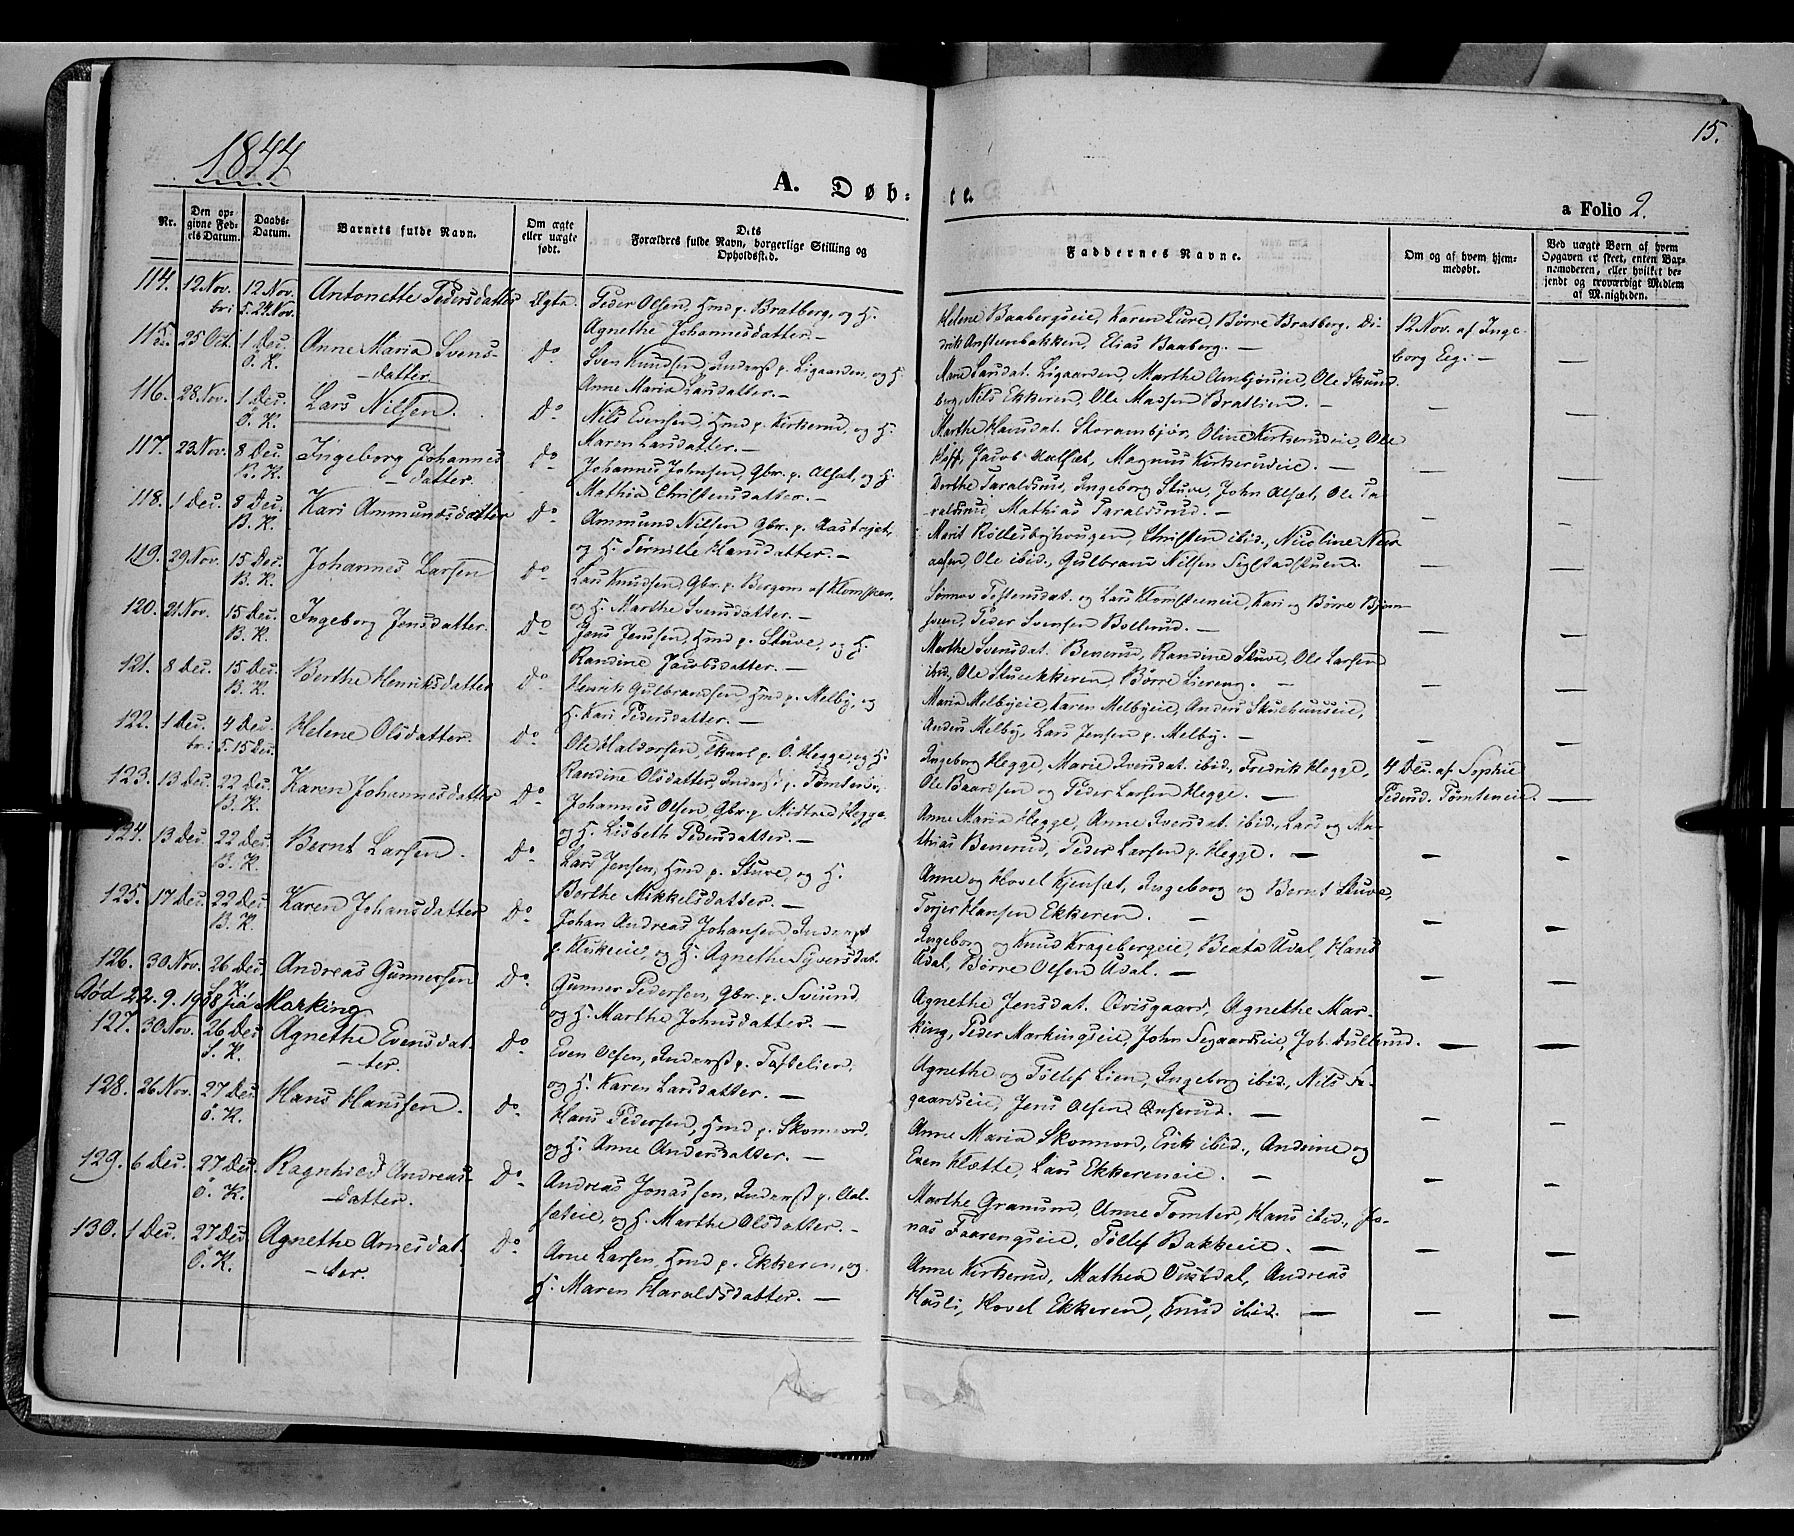 1844
15.
A. Døb-
te.
a Folio 2.
Nr.
Den op-
givne Fød-
sels Datum.
Daabs-
Datum.
Barnets fulde Navn.
Om ægte
eller uægte
født.
Dets
Forældres fulde Navn, borgerlige Stilling og
Opholdssted.
Faddernes Navne.
Om og af hvem hjem-
medøbt.
Ved uægte Børn af hvem
Opgaven er skeet, enten Bar-
nemoderen, eller hvilket be-
jendt og troværdigt Medlem
af Menigheden.
114. 12 Nov. 12 Nov. Antonette Pedersdatter Ægta. Peder Olsen, Hmd p. Bratberg, og H.
bri 5. 24 Nov. Agnethe Johannesdatter. —
Helene Baabergseie, Karen Lure, Børre Bratberg, Di-
drik Austeenbakken, Elias Baaberg. —
12 Nov. af Inge-
borg Eeg. —
115. 25 Oct. 1 Dec. Anne Maria Svens- Do
Ö. K. datter
Sven Knudsen, Inderst p. Ligaarden, og H.
Anne Maria Larsdatter. —
Marie Larsdat. Ligaarden, Marthe Ambjørneie, Ole Skund-
berg, Nils Ekkeren, Ole Madsen Bratlien. —
116. 28 Nov. 1 Dec. Lars Nilsen. Do
Ö. K.
Nils Evensen, Hmd p. Kirkerud, og H.
Maren Larsdatter. —
Marthe Hansdat. Skorambjør, Oline Kirkerudeie, Ole
Hoff, Jacob Kalset, Magnus Kirkerudeie. —
117. 23 Nov. 8 Dec. Ingeborg Johannes Do
B. K. datter.
Johannes Johnsen, Gbr. p. Alset, og H.
Mathia Christensdatter. —
Dorthe Taraldsrud, Ingeborg Stuve, John Alset, Ole Ta-
raldsrud, Mathias Taraldsrud. —
118. 1 Dec. 8 Dec. Kari Ammundsdatter Do
B. K.
Ammund Nilsen, Gbr. p. Aastvejet,
og H. Pernille Hansdatter. —
Marit Rollesbyhougen, Christen ibid., Nicoline Neer-
aasen, Ole ibid., Gulbrand Nilsen Siglstadstuen.
119. 29 Nov. 15 Dec. Johannes Larsen Do
B. K.
Lars Knudsen, Gbr. p. Bergom af Klomsten,
og H. Marthe Svensdatter. —
Sønnøv Tostensdat. og Lars Klomsteneie, Kari og Børre Bjørn-
sveen, Peder Svensen Bollerud. —
120. 21 Nov. 15 Dec. Ingeborg Jensdatter. Do
B. K.
Jens Jensen, Hmd p. Stuve, og H.
Randine Jacobsdatter. —
Marthe Svensdat. Benerud, Randine Stuve, Ole Larsen
ibid., Ole Stuveekkeren, Børre Liereng. —
121. 8 Dec. 15 Dec. Berthe Henriksdatter Do
B. K.
Henrik Gulbrandsen, Hmd p. Melby, og
H. Kari Pedersdatter. —
Maria Melbyeie, Karen Melbyeie, Anders Skulhuuseie,
Anders Melby, Lars Jensen p. Melby. —
122. 1 Dec. 4 Dec. Helene Olsdatter. Do
bri 5. 15 Dec.
Ole Haldorsen, Tkarl p. Ö. Hegge, og H.
Randine Olsdatter, Inderst p. Tomteneie.
Ingeborg Hegge, Marie Iversdat. ibid., Fredrik Hegge,
Ole Baardsen og Peder Larsen Hegge. —
4 Dec. af Sophie
Pedersd. Tomteneie.
123. 13 Dec. 22 Dec. Karen Johannesdatter Do
B. K.
Johannes Olsen, Gbr. p. Midtre Hegge
og H. Lisbeth Pedersdatter. —
Anne Maria Hegge, Anne Iversdat. ibid., Lars og Ma-
thias Benerud, Peder Larsen p. Hegge. —
124. 13 Dec. 22 Dec. Bernt Larsen. Do
B. K.
Lars Jensen, Hmd p. Stuve, og H.
Berthe Mikkelsdatter. —
Anne og Hovel Kjenset, Ingeborg og Bernt Stuve,
Torjer Hansen Ekkeren. —
125. 17 Dec. 22 Dec. Karen Johansdatter Do
B. K.
Johan Andreas Johansen, Inderst
p. Klukeeie, og H. Agnethe Syversdat.
Ingeborg og Knud Kragebergeie, Beata Udal, Hans
Udal, Børre Olsen Udal. —
126. 30 Nov. 26 Dec. Andreas Gunnersen Do
S. K.
Død 22.9.1908 paa Marking
Gunner Pedersen, Gbr. p. Sviund,
og H. Marthe Johnsdatter. —
Agnethe Jensdat. Qvisgaard, Agnethe Mar-
king, Peder Markingseie, John Segaardseie, Joh. Dullerud.
127. 30 Nov. 26 Dec Agnethe Evensdat- Do
S. K. ter.
Even Olsen, Inderst p. Toftelien,
og H. Karen Larsdatter. —
Agnethe og Tøllef Lien, Ingeborg ibid., Nils Se-
gaardseie, Jens Olsen Onserud. —
128. 26 Nov. 27 Dec Hans Hansen. Do
Ö. K.
Hans Pedersen, Hmd p. Skonnord,
og H. Anne Andersdatter. —
Anne Maria Skonnord, Erik ibid., Andrine og
Even Klette, Lars Ekkereneie. —
129. 6 Dec. 27 Dec. Ragnhild Andreas- Do
Ö. K. datter.
Andreas Jonassen, Inderst p. Aal-
seteie, og H. Marthe Olsdatter. —
Marthe Granund, Anne Tomter, Hans ibid., Jo-
nas Faarengseie, Tøllef Bakkeeie. —
130. 1 Dec. 27 Dec Agnethe Arnesdat- Do
Ö. K. ter.
Arne Larsen, Hmd p. Ekkeren, og
H. Maren Haraldsdatter. —
Anne Kirkerud, Mathea Oustdal, Andreas
Husli, Hovel Ekkeren, Knud ibid. —